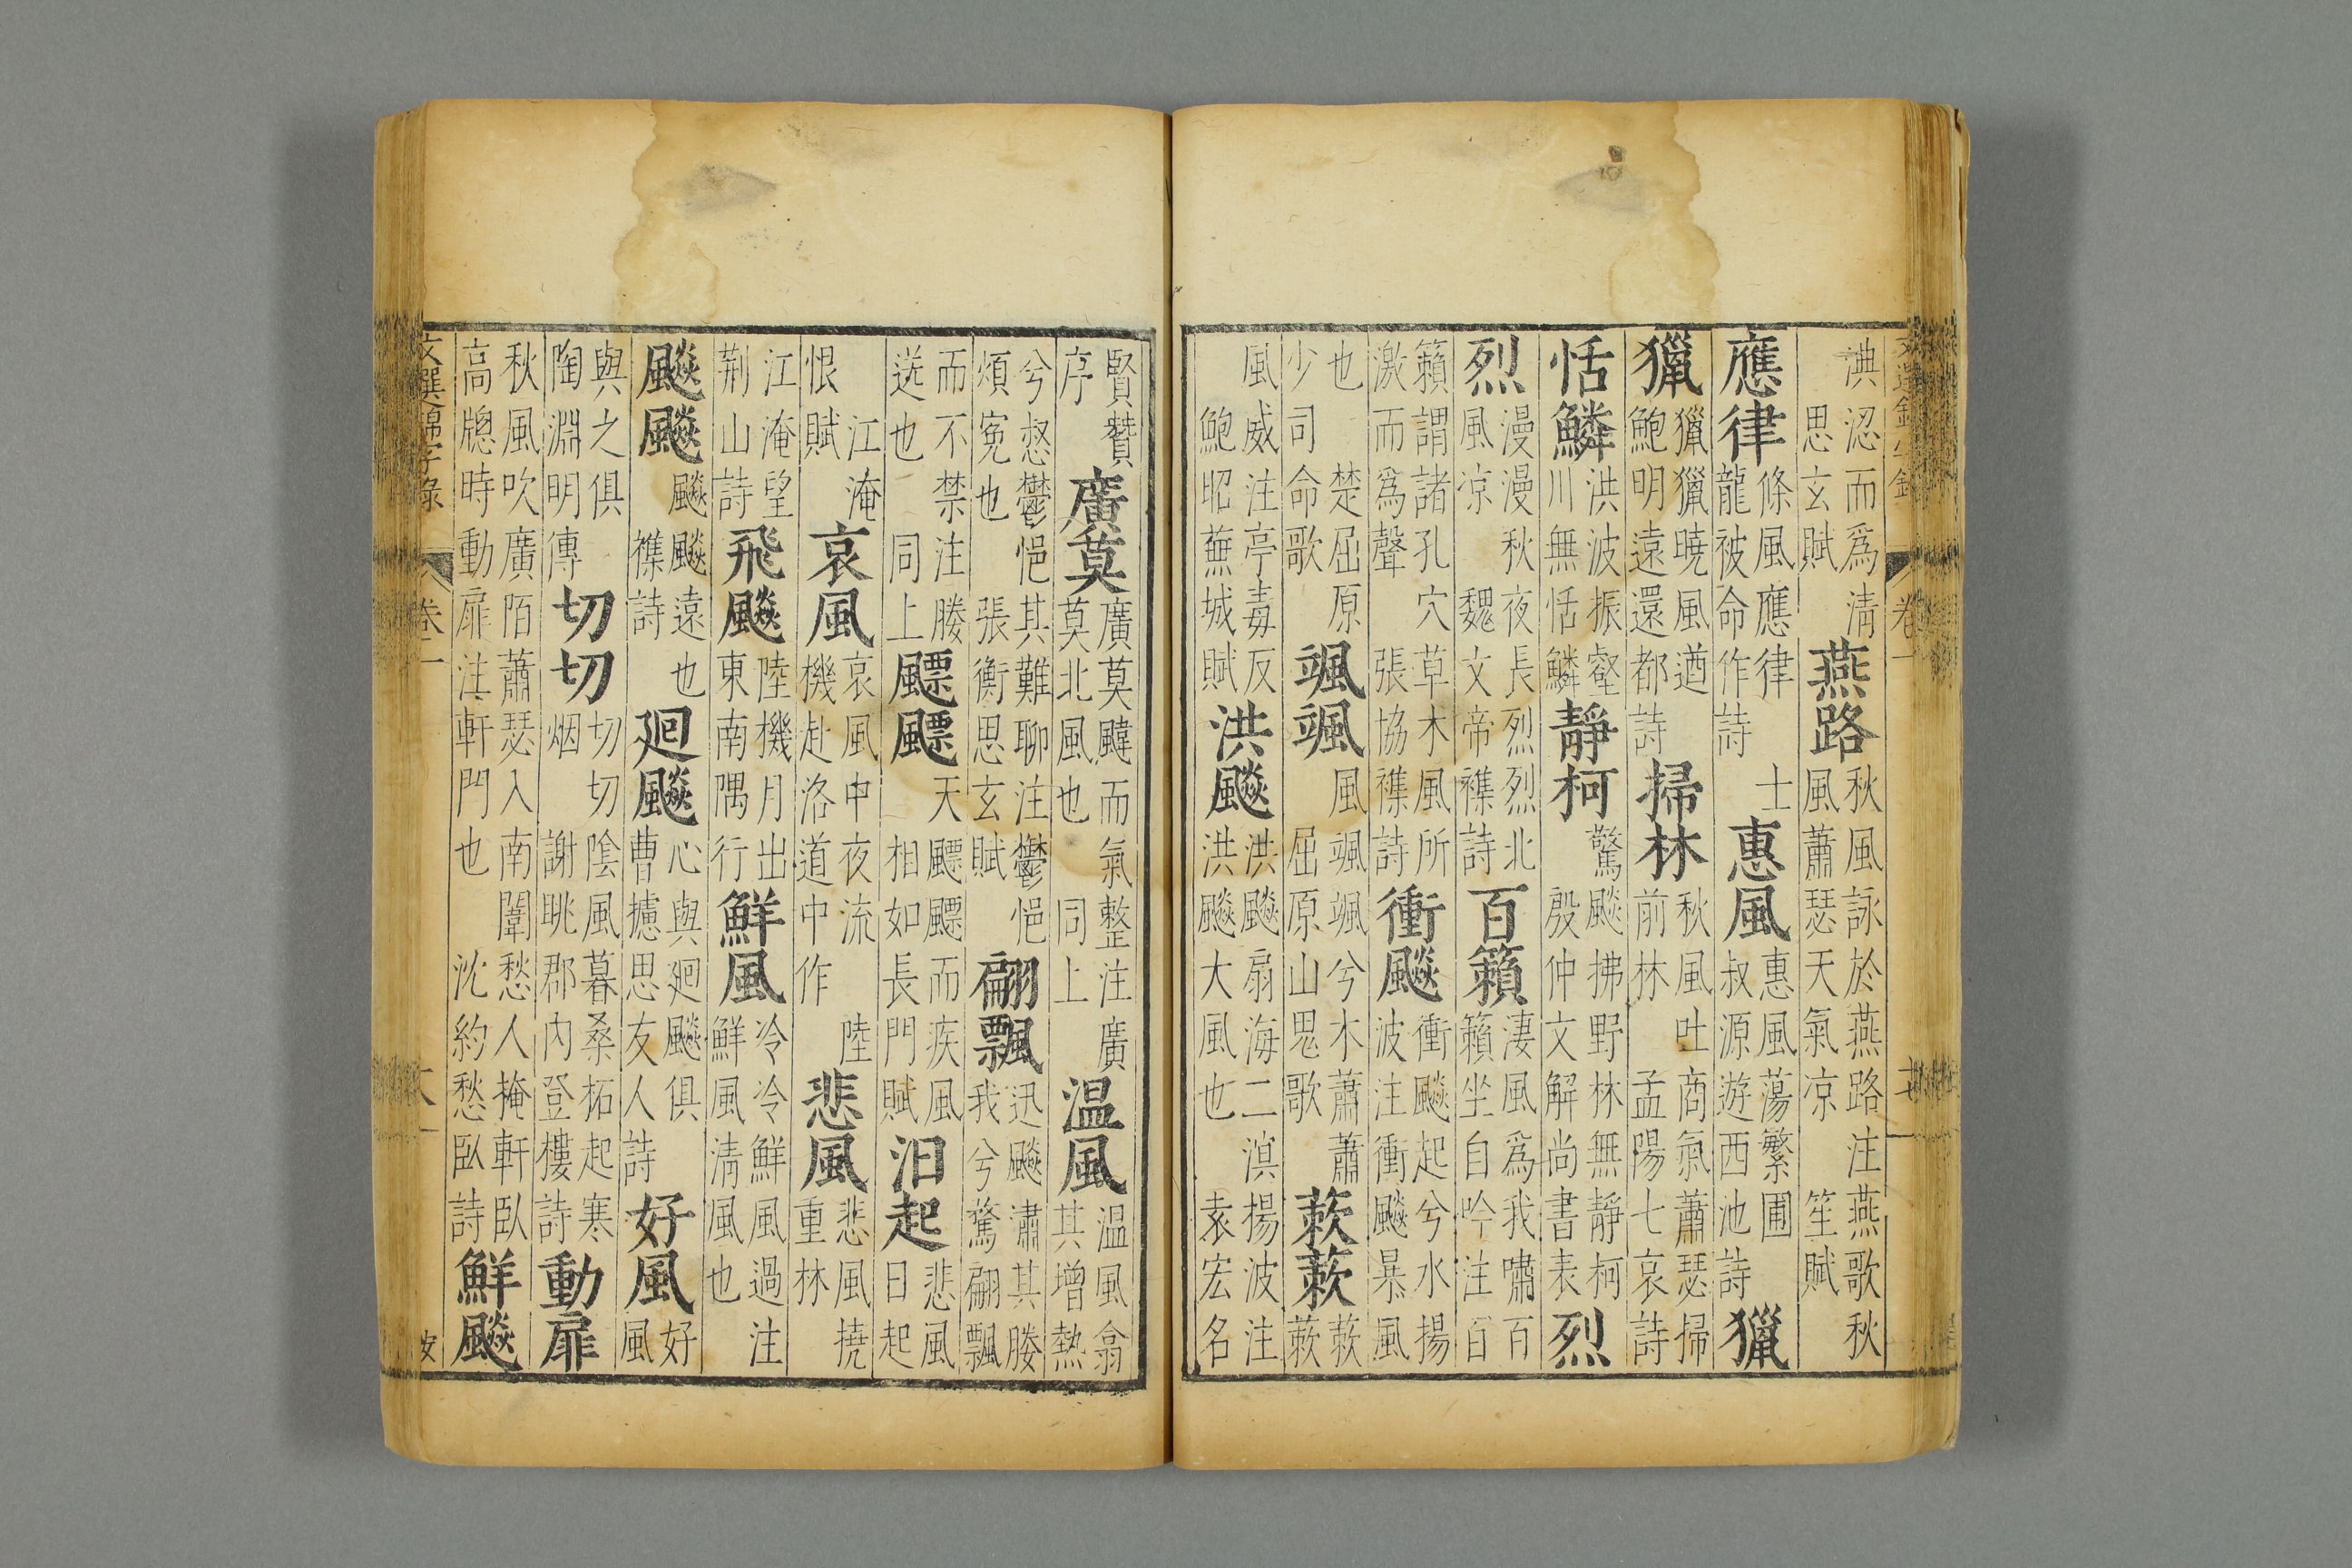 淟涊而爲清思玄賦燕路秋風詠於燕路注燕歌秋風蕭瑟天氣凉笙賦
應律條風應律士龍被命作詩惠風惠風蕩繁圃叔源遊西池詩獵
獵獵獵曉風遒鮑明遠還都詩掃林秋風吐商氣蕭瑟掃前林孟陽七哀詩
恬鱗洪波振壑川無恬鱗靜柯驚飇拂野林無靜柯殷仲文解尚書表烈
烈漫漫秋夜長烈烈北風凉魏文帝襍詩百籟淒風爲我嘯百籟坐自吟注百
籟謂諸孔穴草木風所激而爲聲張協襍詩衝飇衝飇起兮水揚波注衝飇暴風
也楚屈原少司命歌颯颯風颯颯兮木蕭蕭屈原山鬼歌蔌蔌蔌蔌
風威注亭毒反鮑昭蕪城賦洪飇洪飇扇海二溟揚波注洪飇大風也袁宏名
賢贊序廣莫廣莫颹而氣整注廣莫北風也同上温風温風翕其增熱
兮惄鬱悒其難聊注鬱悒煩寃也張衡思玄賦翩飄迅飇潚其媵我兮驚翩飄
而不禁注媵送也同上飄飄天飄飄而疾風相如長門賦汨起悲風日起
江淹恨賦哀風哀風中夜流陸機赴洛道中作悲風悲風撓重林
江淹望荆山詩飛飇陸機月出東南隅行鮮風冷冷鮮風過注鮮風清風也
飇飇飇飇遠也襍詩廻飇心與廻飇俱曹攄思友人詩好風好風
與之俱陶淵明傳切切切切陰風暮桑柘起寒烟謝眺郡內登樓詩動扉
秋風吹廣陌蕭瑟入南闈愁人掩軒卧高牕時動扉注軒門也沈約愁卧詩鮮飇
文選錦字錄 卷一